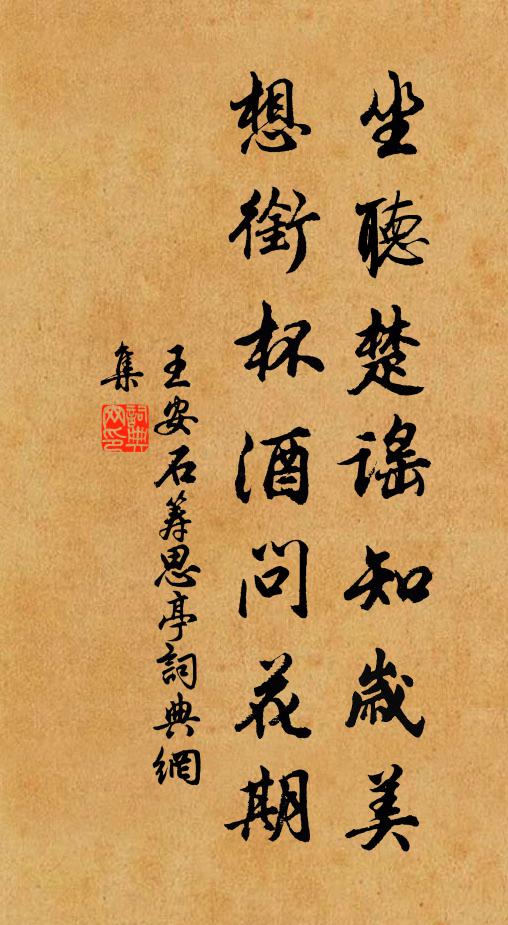 坐聽楚謠知歲美
想銜杯酒問花期
王安石籌思亭詞典網
集
詞典網印